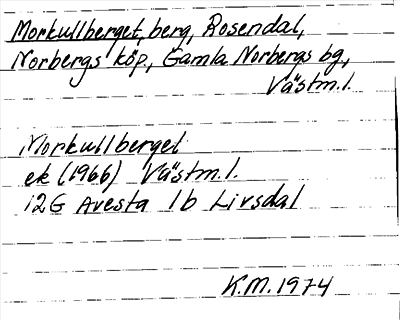 Morkullberget, berg, Rosendal,
Norbergs köp., Gamla Norbergs bg,
Västm.l.
Morkullberget
ek (1966) Västm.l.
12G Avesta 1b Livsdal
K.M. 1974